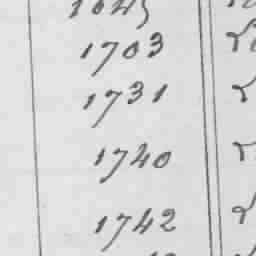 1703
1731
1740
1742